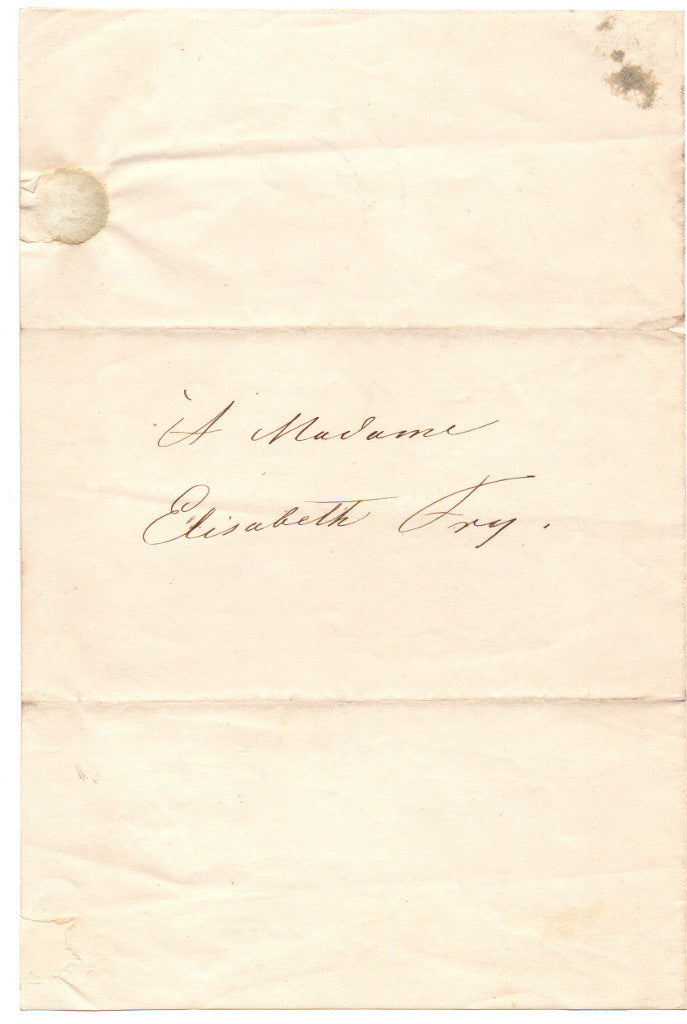 À Madame
Elisabeth Fry.